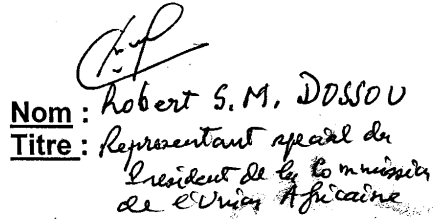 Nom : Robert S. M. DOSSOU
Titre : Représentant spécial du
Président de la Commission
de l'Union Africaine